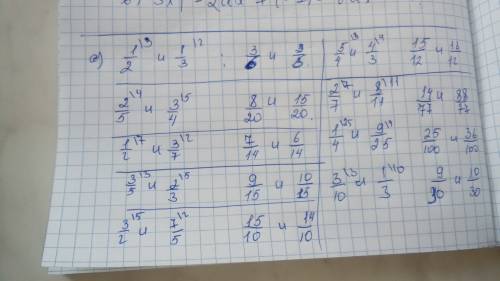 а) 1/2\3 и 1/3\2 ; 3/6 и 3/6.
2/5\4 и 3/4\5 8/20 и 15/20.
1/2\7 и 3/7\2 7/14 и 6/14
3/5\3 и 2/3\5 9/15 и 10/15
3/2\5 и 7/5\2 15/10 и 14/10
5/4\3 и 4/3\4 15/12 и 16/12
2/7\7 и 8/11\11 14/77 и 88/77
1/4\25 и 9/25\4 25/100 и 36/100
3/10\3 и 1/3\10 9/30 и 10/30